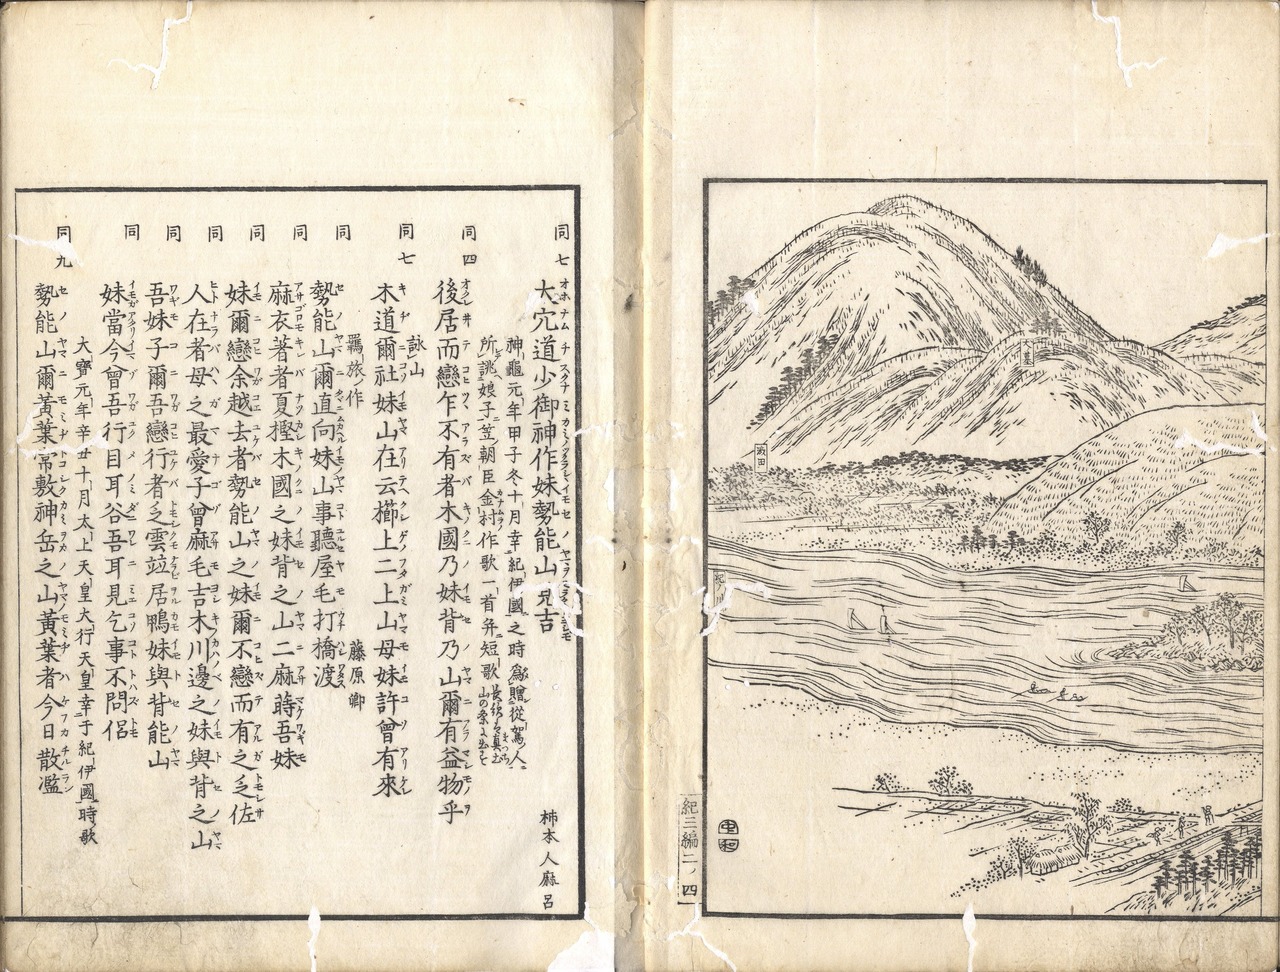 大墓
飯田
紀ノ川
中和
紀三編二ノ四
同七
大穴道少御神作妹勢能山見吉
柿本人麻呂
神龜元年甲子冬十月幸紀伊國之時爲贈從駕人
所誂娘子笠朝臣金村作歌一首并短歌
同四
後居而戀乍不有者木國乃妹背乃山爾有益物乎
詠山
同七
木道爾社妹山在云櫛上二上山母妹許曾有來
羈旅作
藤原卿
同
勢能山爾直向妹山事聽屋毛打橋渡
同
麻衣著者夏樫木國之妹背之山二麻蒔吾妹
同
妹爾戀余越去者勢能山之妹爾不戀而有之乏佐
同
人在者母之最愛子曾麻毛吉木川邊之妹與背之山
同
吾妹子爾吾戀行者乏雲竝居鴨妹與背能山
同
妹當今曾吾行目耳谷吾耳見乞事不問侶
大寶元年辛丑十月太上天皇大行天皇幸于紀伊國時歌
同九
勢能山爾黃葉常敷神岳之山黃葉者今日散濫